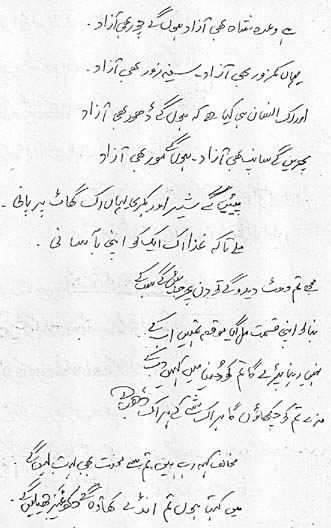 ہے وعدہ شاہ بھی آزاد ہوں گے چور بھی آزاد۔
یہاں کمزور بھی آزاد۔ سینہ زور بھی آزاد۔
اور اک انسان ہی کیا ہے کہ ہوں گے ڈھور بھی آزاد
پھریں گے سانپ بھی آزاد۔ ہوں گے مور بھی آزاد
پیئیں گے شیر اور بکری یہاں اک گھاٹ پر پانی۔
ملے تاکہ غذا اک ایک کو اپنی بآسانی۔
مجھے تم ووٹ دیدو گے تو دن پھر جائیں گے سب کے
بنا لو اپنی قسمت مل گیا موقعہ تمہیں اب کے
نہیں رہنا پڑے گا تم کو دنیا میں کہیں دب کے
مزے تم کو چکھاؤں گا ہر اک شے کے ہر اک ڈھب کے
مخالف کہہ رہے ہیں تم سے محنت بھی بہت لیں گے۔
میں کہتا ہوں تم انڈے کھاؤ گے دکھ غیر جھیلیں گے